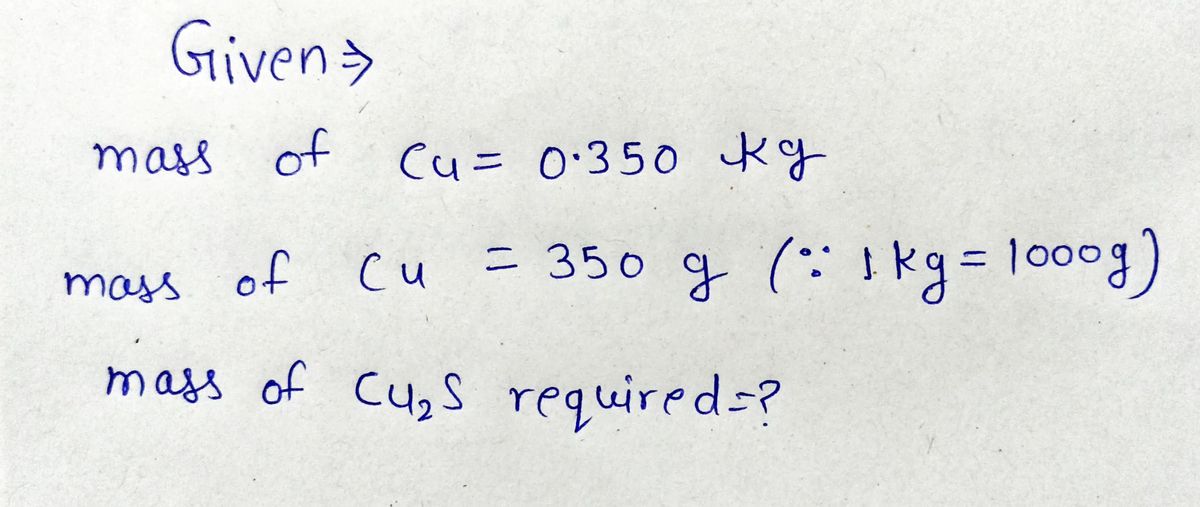 Given ⇒
mass of Cu = 0.350 kg
mass of Cu = 350 g (∵ 1 kg = 1000g)
mass of Cu₂S required = ?